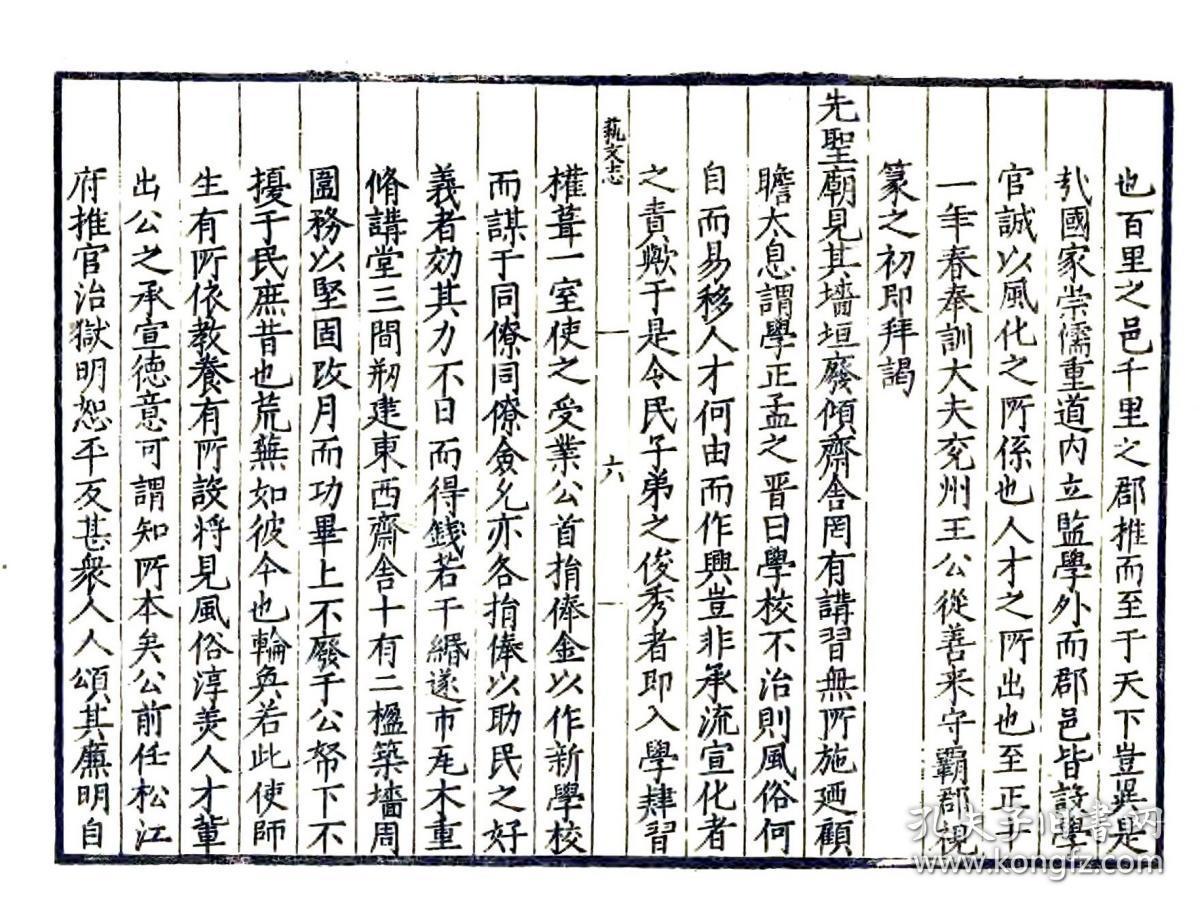 也百里之邑千里之郡推而至于天下豈異是
㢤國家崇儒重道内立監學外而郡邑皆設學
官誠以風化之所係也人才之所出也至正十
一年春奉訓大夫兖州王公從善来守霸郡視
篆之初即拜謁
先聖廟見其墻垣廢傾齋舎罔有講習無所施廼顧
瞻太息謂學正孟之晋曰學校不治則風俗何
自而易移人才何由而作興豈非承流宣化者
之責歟于是令民子弟之俊秀者即入學肄習
藝文志
六
權葺一室使之受業公首捐俸金以作新學校
而謀于同僚同僚僉允亦各捐俸以助民之好
義者効其力不日而得錢若干緡遂市瓦木重
脩講堂三間剏建東西齋舎十有二楹築墻周
圍務以堅固改月而功畢上不廢于公帑下不
擾于民庶昔也荒蕪如彼今也輪奐若此使師
生有所依教養有所設将見風俗淳美人才輩
出公之承宣徳意可謂知所本矣公前任松江
府推官治獄明恕平反甚衆人人頌其廉明自
孔夫子旧书网
www.kongfz.com